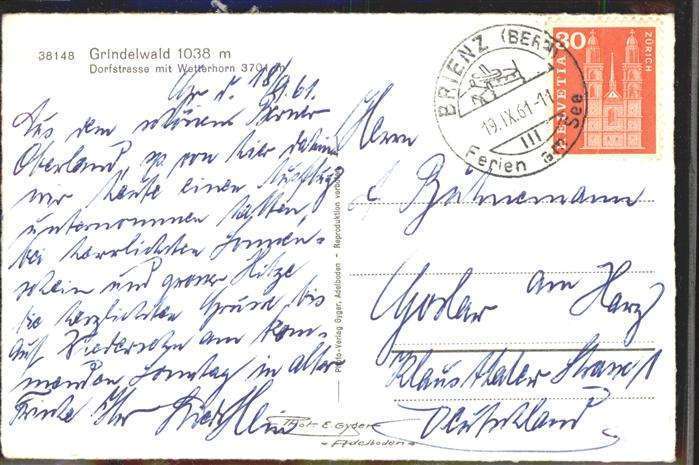 38148 Grindelwald 1038 m
Dorfstrasse mit Wetterhorn 3701 m
d. 18/9.61.
Aus dem schönen Berner
Oberland, von hier
wir heute einen Ausflug
unternommen hatten,
bei herrlichsten Sonnen-
schein und grosser Hitze
die herzlichsten Grüsse, bis
auf Wiedersehn am kom-
menden Sonntag in alter
Frische Ihr
Photo-Verlag Gyger, Adelboden - Reproduktion verboten
BRIENZ (BERN)
19.IX.61-11
Ferien am See
30
HELVETIA
ZÜRICH
Herrn
Goslar am Harz
Klausthaler Strasse 1
Deutschland
Phot. E. Gyger
Adelboden